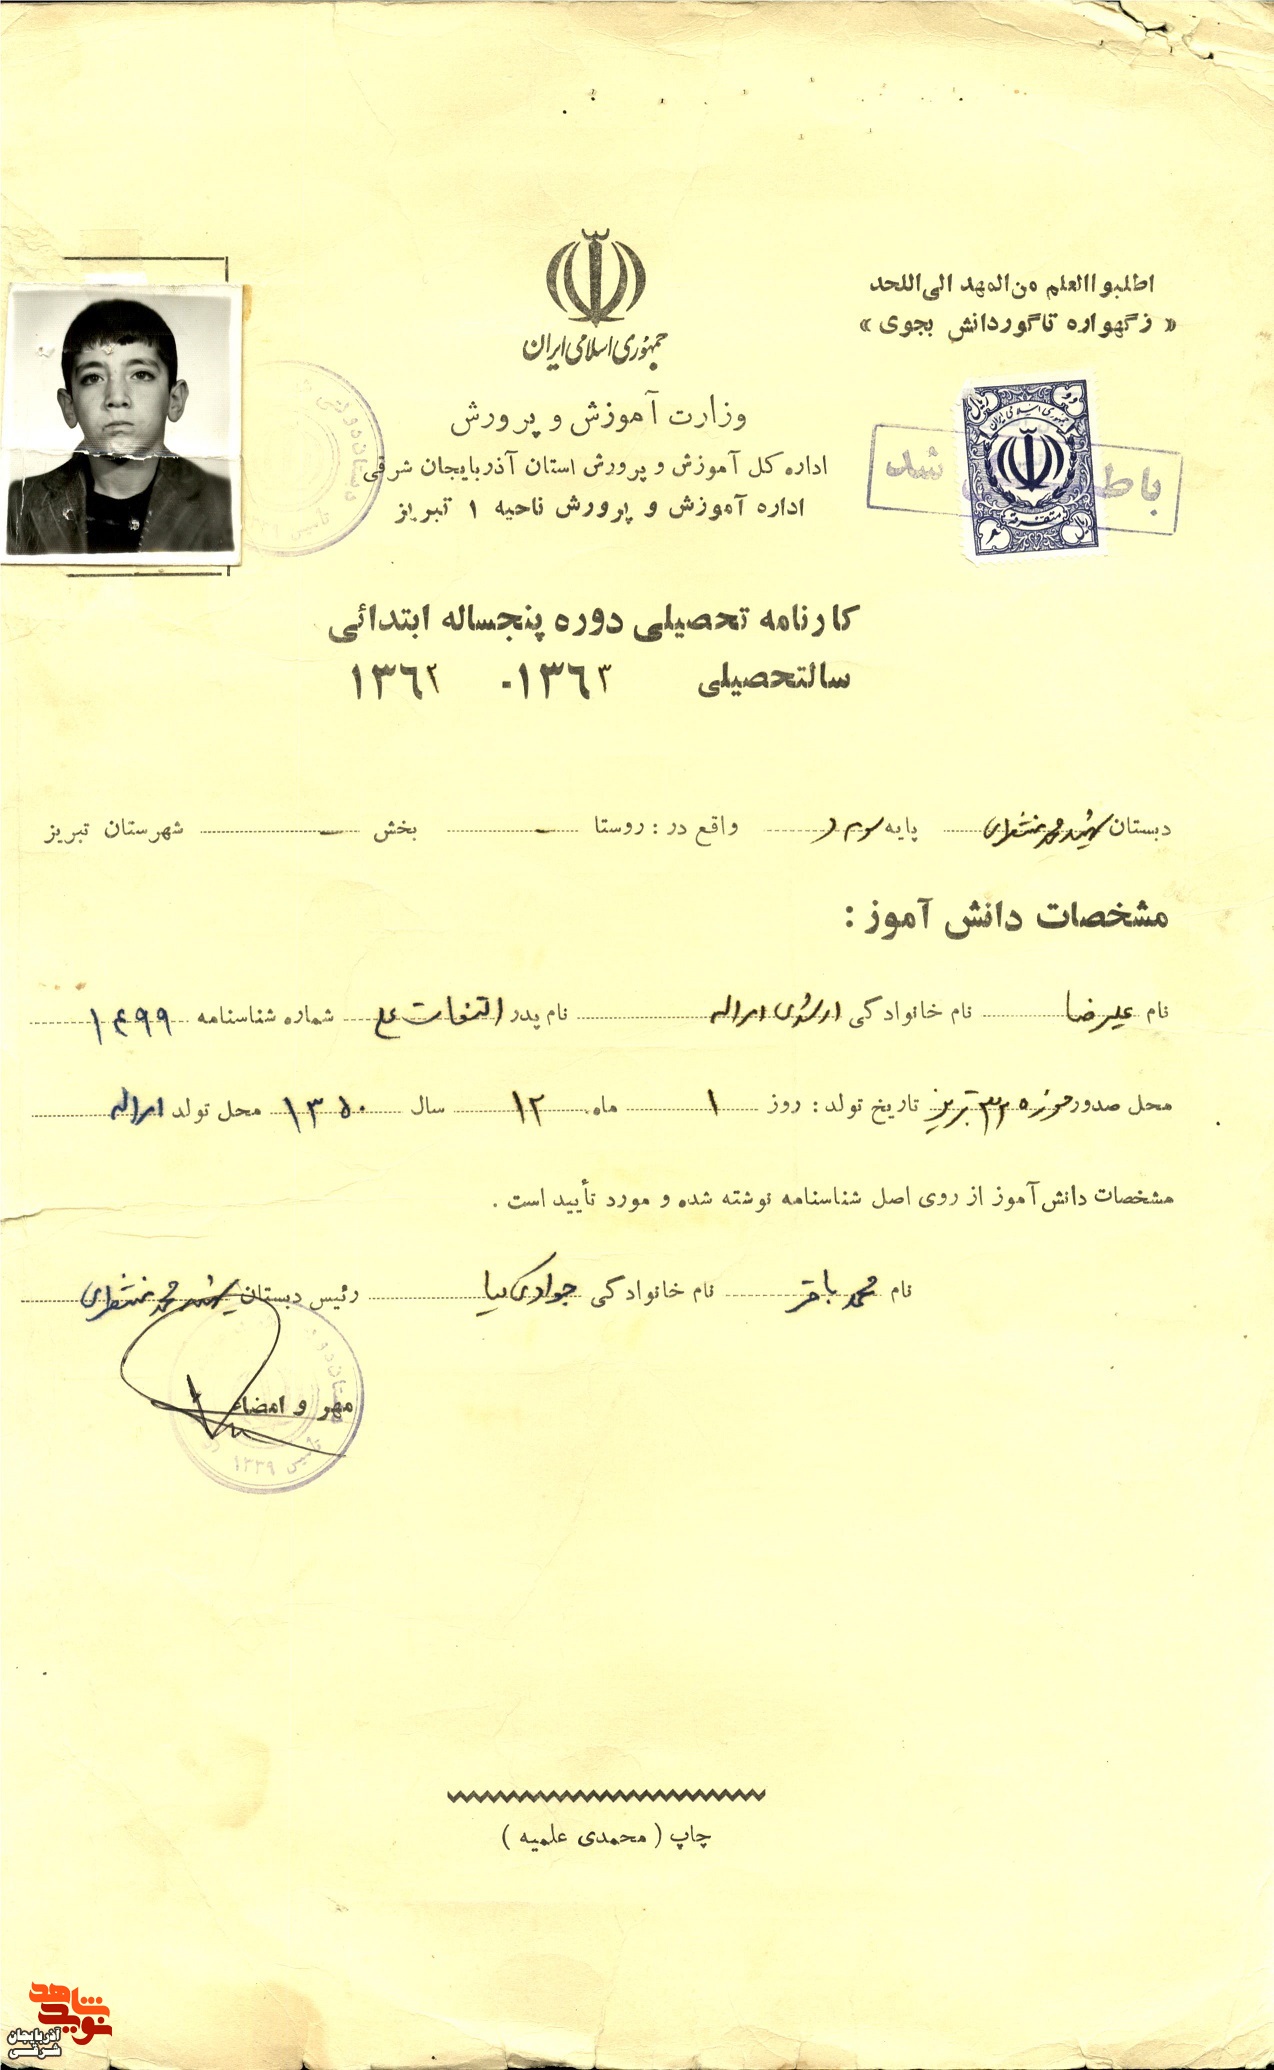 اطلبوا العلم من المهد الی اللحد
« ز گهواره تا گور دانش بجوی »
جمهوری اسلامی ایران
وزارت آموزش و پرورش
اداره کل آموزش و پرورش استان آذربایجان شرقی
اداره آموزش و پرورش ناحیه ۱ تبریز
دو ریال
جمهوری اسلامی ایران
متفرقه
۲ ریال
باط شد
کارنامه تحصیلی دوره پنجساله ابتدائی
سالتحصیلی ۱۳۶۳ - ۱۳۶۲
دبستان شهید محمد منتظری پایه سوم واقع در : روستا — بخش — شهرستان تبریز
مشخصات دانش آموز :
نام علیرضا نام خانوادگی نام پدر التفات علی شماره شناسنامه ۱۴۹۹
محل صدور حوزه ۳۲ تبریز تاریخ تولد : روز ۱ ماه ۱۲ سال ۱۳۵۰ محل تولد
مشخصات دانش آموز از روی اصل شناسنامه نوشته شده و مورد تأیید است .
نام محمد باقر نام خانوادگی جوادی نیا رئیس دبستان شهید محمد منتظری
مهر و امضاء
تأسیس ۱۳۳۹
چاپ ( محمدی علمیه )
نوید شاهد
آذربایجان شرقی